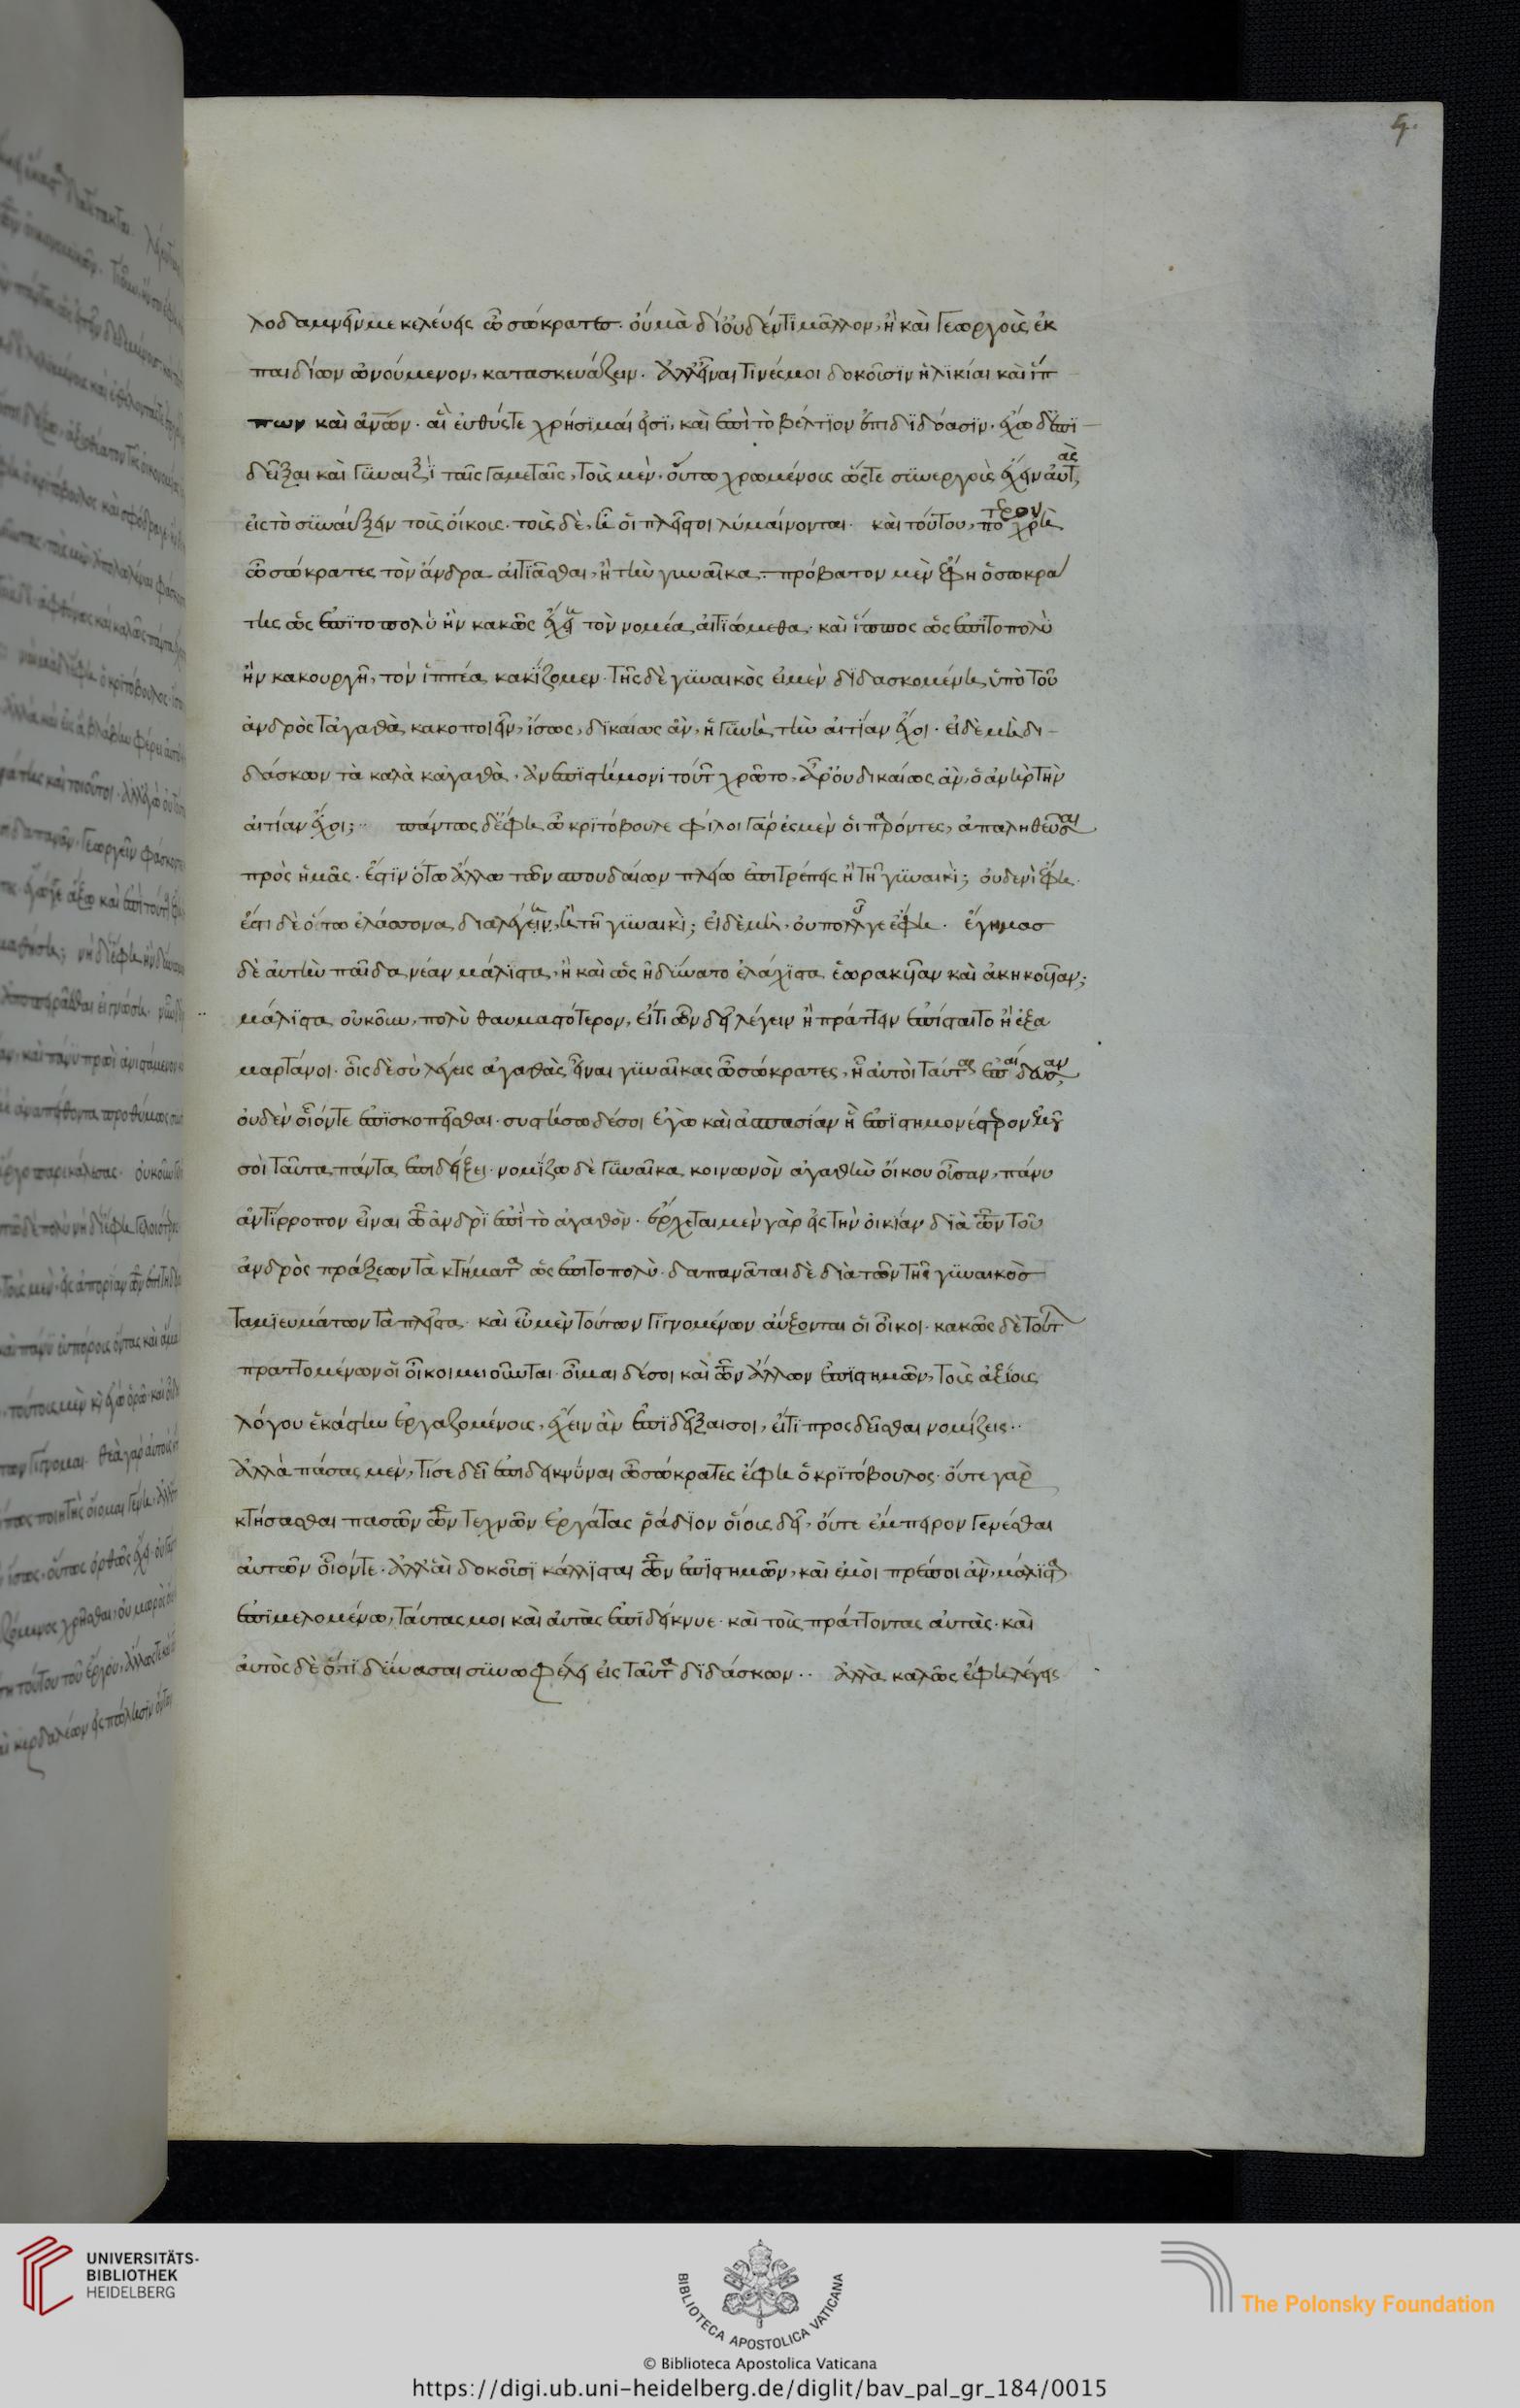 9.
λοδαμνεῖν με κελέυεις ὦ σώκρατες. οὐ μὰ δί οὐδέν τι μᾶλλον, ἢ καὶ γεωργοὺς ἐκ
παιδίων ὠνούμενον, κατασκευάζειν. ἀλλ εἶναι τινές μοι δοκοῦσϊν ἡλϊκίαι καὶ ἵπ
πων καὶ ἀνων. αἳ ἐυθύς τε χρήσϊμαί εἰσϊ, καὶ ἐπὶ τὸ βέλτϊον ἐπιδϊδόασϊν. ἔχω δ ἐπϊ
δεῖξαι καὶ γϋναιξῒ ταῖς γαμεταῖς, τοὺς μὲν. οὕτω χρωμένους ὥςτε σϋνεργοὺς ἔχειν ἀυτὰς,
εἰς τὸ σϋναύξειν τοὺς οἴκους. τοὺς δὲ, ἧ οἱ πλεῖστοι λϋμαίνονται. καὶ τούτου, πότερον χρὴ
ὦ σώκρατες τὸν ἄνδρα αἰτιᾶσθαι, ἢ τὴν γυναῖκα. πρόβατον μὲν ἔφη ὁ σωκρα
της ὡς ἐπϊτοπολὺ ἢν κακῶς ἔχη τὸν νομέα, αἰτϊώμεθα. καὶ ἵππος ὡς ἐπϊτοπολὺ
ἢν κακουργῆ, τὸν ἱππέα κακΐζομεν. τῆς δὲ γϋναικὸς εἰ μὲν δϊδασκομένη ὑπὸ τοῦ
ἀνδρὸς τἀγαθὰ, κακοποιεῖν, ἴσως, δϊκαίως ἂν, ἡ γϋνὴ τὴν αἰτίαν ἔχοι. εἰ δὲ μὴ δι
δάσκων τὰ καλὰ κἀγαθὰ. ἀνεπϊστήμονι τούτ χρῶτο, ἆρ οὐ δικαίως ἂν, ὁ ἀνὴρ τὴν
αἰτίαν ἔχοι; πάντως δ ἔφη ὦ κρϊτόβουλε φίλοι γάρ ἐσμὲν οἱ παρόντες, ἀπαληθεῦσαι
πρὸς ἡμᾶς. ἔστϊν ὅτω ἄλλω τῶν σπουδαίων πλείω ἐπιτρέπεις ἢ τῆ γϋναικὶ; οὐδενὶ ἔφη.
ἔστι δὲ ὅτω ἐλάσσονα διαλέγειν, ἢ τῆ γϋναικὶ; εἰ δὲ μὴ, οὐ πολλοῖς γε ἔφη. ἔγημας
δὲ ἀυτὴν παῖδα νέαν μάλϊστα, ἢ καὶ ὡς ἠδϋνατο ἐλάχϊστα ἑωρακυῖαν καὶ ἀκηκουῖαν;
μάλϊστα. οὐκοῦν, πολὺ θαυμαστότερον, εἴτι ὧν δεῖ λέγειν ἢ πράττειν ἐπίσταιτο ἢ ἐξα
μαρτάνοι. οἷς δὲ σὺ λέγεις ἀγαθὰς εἶναι γϋναῖκας ὦ σώκρατες, ἦ αὐτοὶ ταύτας ἐπαίδευσαν,
οὐδὲν οἷόν τε ἐπϊσκοπεῖσθαι. συστήσω δέ σοι ἐγὼ καὶ ἀσπασίαν ἣ ἐπϊστημονέστερον ἐμοῦ
σοὶ ταῦτα πάντα ἐπιδείξει. νομϊζω δὲ γϋναῖκα κοινωνὸν ἀγαθὴν οἴκου οὖσαν, πάνυ
ἀντϊρροπον εἶναι τῶ ἀνδρῒ ἐπὶ τὸ ἀγαθὸν. ἔρχεται μὲν γὰρ εἰς τὴν οἰκίαν δϊὰ τῶν τοῦ
ἀνδρὸς πράξεων τὰ κτήματα ὡς ἐπιτοπολὺ. δαπανᾶται δὲ διὰ τῶν τῆς γϋναικὸς
ταμϊευμάτων τὰ πλεῖστα. καὶ εὖ μὲν τούτων γϊγνομένων ἀύξονται οἱ οἶκοι. κακῶς δὲ τούτ
πραττομένων οἱ οἶκοι μειοῦνται. οἶμαι δέ σοι καὶ τῶν ἄλλων ἐπϊστημῶν, τοὺς ἀξίους
λόγου ἑκάστην ἐργαζομένους, ἔχειν ἂν ἐπϊδεῖξαι σοι, εἴτϊ προςδεῖσθαι νομίζεις..
Ἀλλὰ πάσας μὲν, τί σε δεῖ ἐπιδεικνΰναι ὦ σώκρατες ἔφη ὁ κρϊτόβουλος. οὔτε γὰρ
κτήσασθαι πασῶν τῶν τεχνῶν ἐργάτας ῥάδϊον οἵους δεῖ, οὔτε ἔμπειρον γενέσθαι
αὐτῶν οἷόν τε. ἀλλ αἳ δοκοῦσϊ κάλλϊσται τῶν ἐπϊστημῶν, καὶ ἐμοὶ πρέποι ἂν, μάλϊστα
ἐπϊμελομένω, ταύτας μοι καὶ αὐτὰς ἐπϊδείκνυε. καὶ τοὺς πράττοντας αὐτὰς. καὶ
αὐτὸς δὲ ὅτι δΰνασαι σϋνωφέλει εἰς ταῦτα δϊδάσκων.. Ἀλλὰ καλῶς ἔφη λέγεις
UNIVERSITÄTS-
BIBLIOTHEK
HEIDELBERG
BIBLIOTECA APOSTOLICA VATICANA
© Biblioteca Apostolica Vaticana
The Polonsky Foundation
https://digi.ub.uni-heidelberg.de/diglit/bav_pal_gr_184/0015